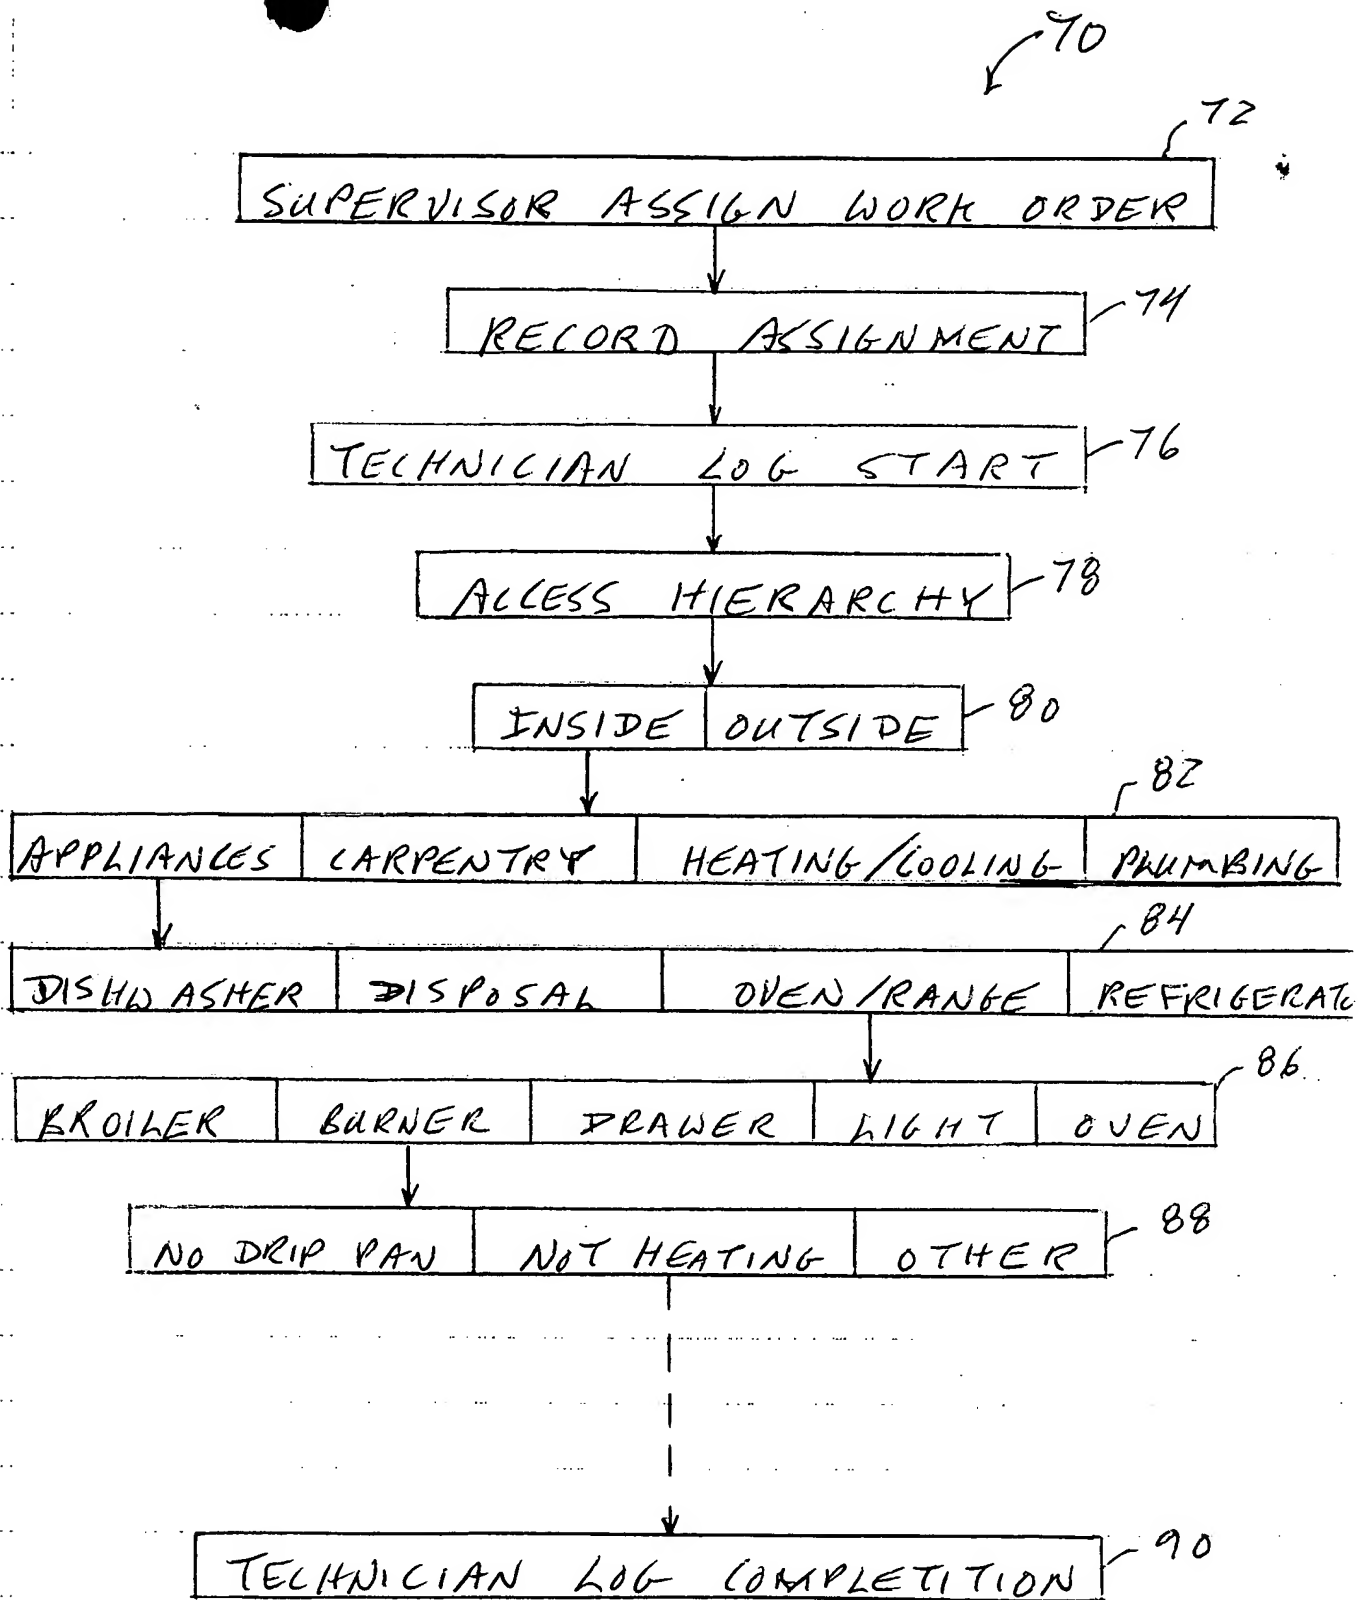 70
72
SUPERVISOR ASSIGN WORK ORDER
74
RECORD ASSIGNMENT
76
TECHNICIAN LOG START
78
ACCESS HIERARCHY
INSIDE OUTSIDE 80
82
APPLIANCES CARPENTRY HEATING/COOLING PLUMBING
84
DISHWASHER DISPOSAL OVEN/RANGE REFRIGERATO
86
BROILER BURNER DRAWER LIGHT OVEN
88
NO DRIP PAN NOT HEATING OTHER
90
TECHNICIAN LOG COMPLETITION